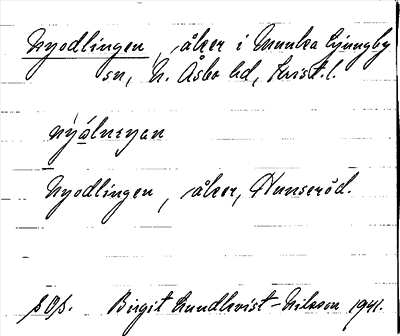 Nyodlingen, åker i Munka Ljungby
sn, N. Åsbo hd, Krist. l.
Nyodlingen, åker, Hunseröd.
Birgit Lundkvist-Nilsson 1941.